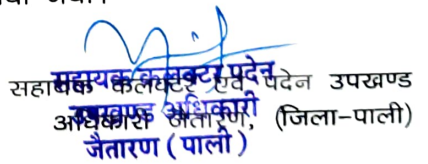 सहायक कलक्टर एवं पदेन उपखण्ड
अधिकारी जैतारण, (जिला-पाली)
सहायक कलक्टर पदेन
उपखण्ड अधिकारी
जैतारण (पाली)